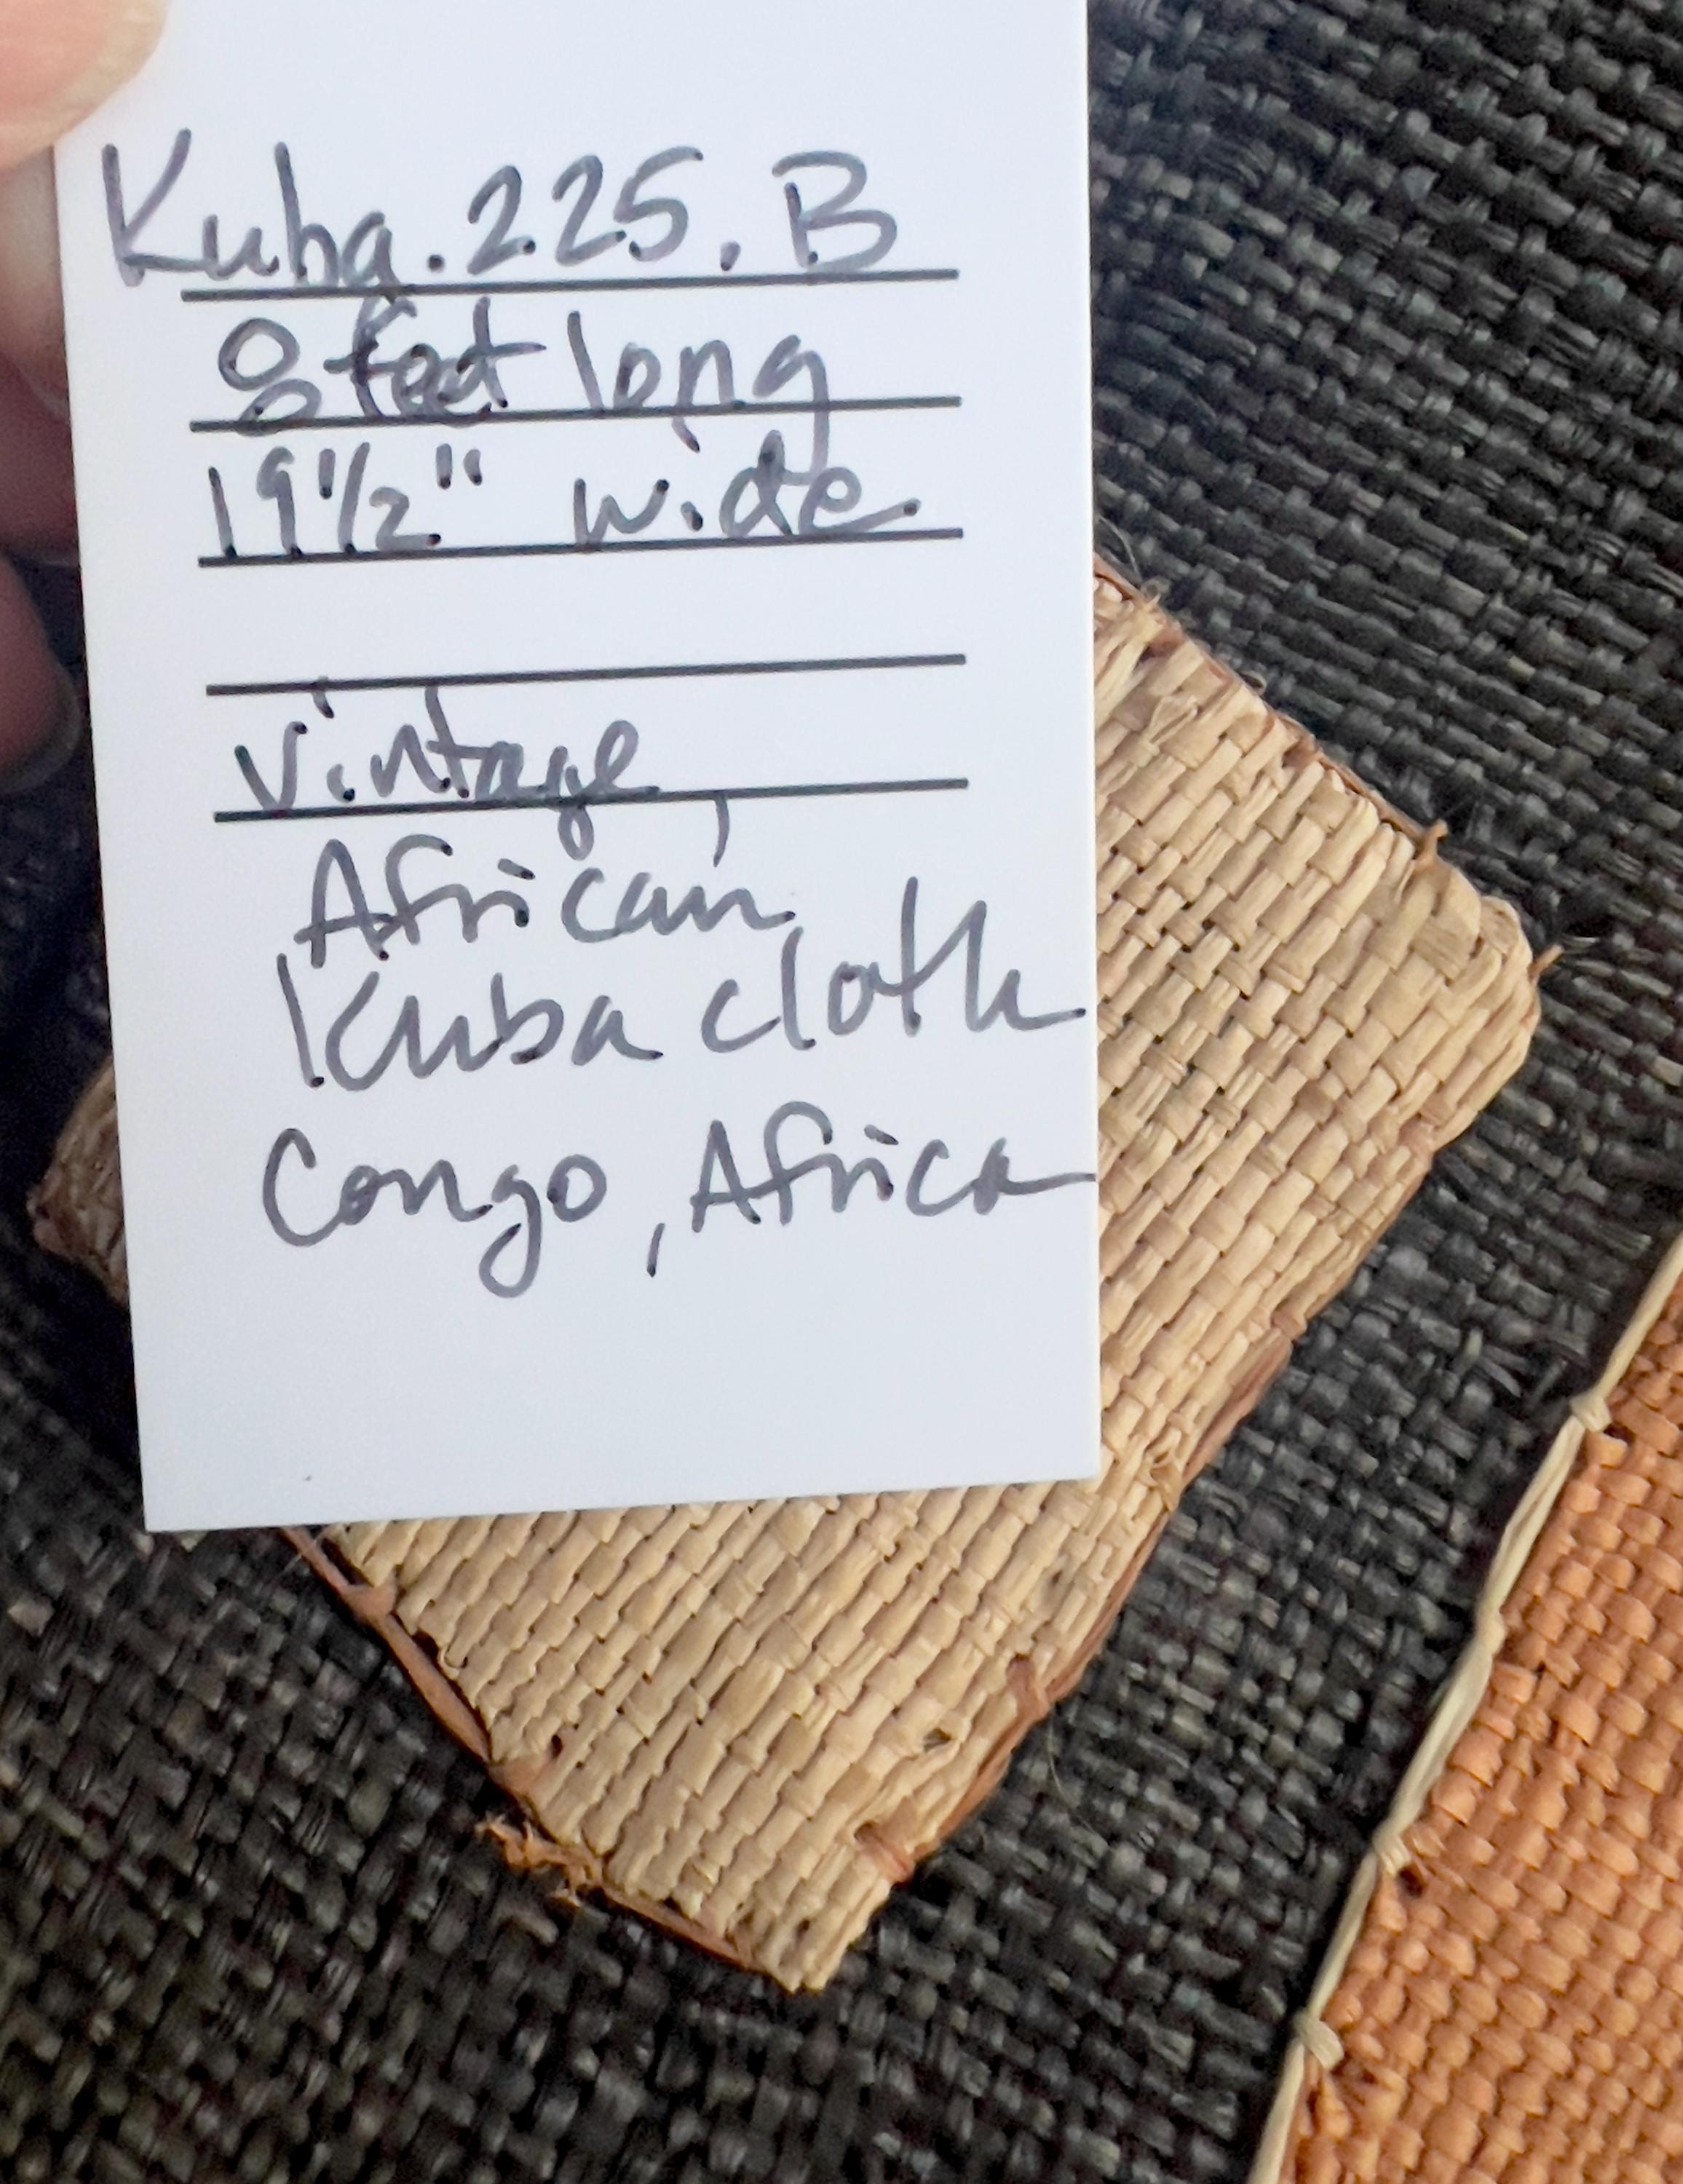 Kuba.225.B
8 feet long
19 1/2" wide
Vintage
African
Kuba cloth
Congo, Africa